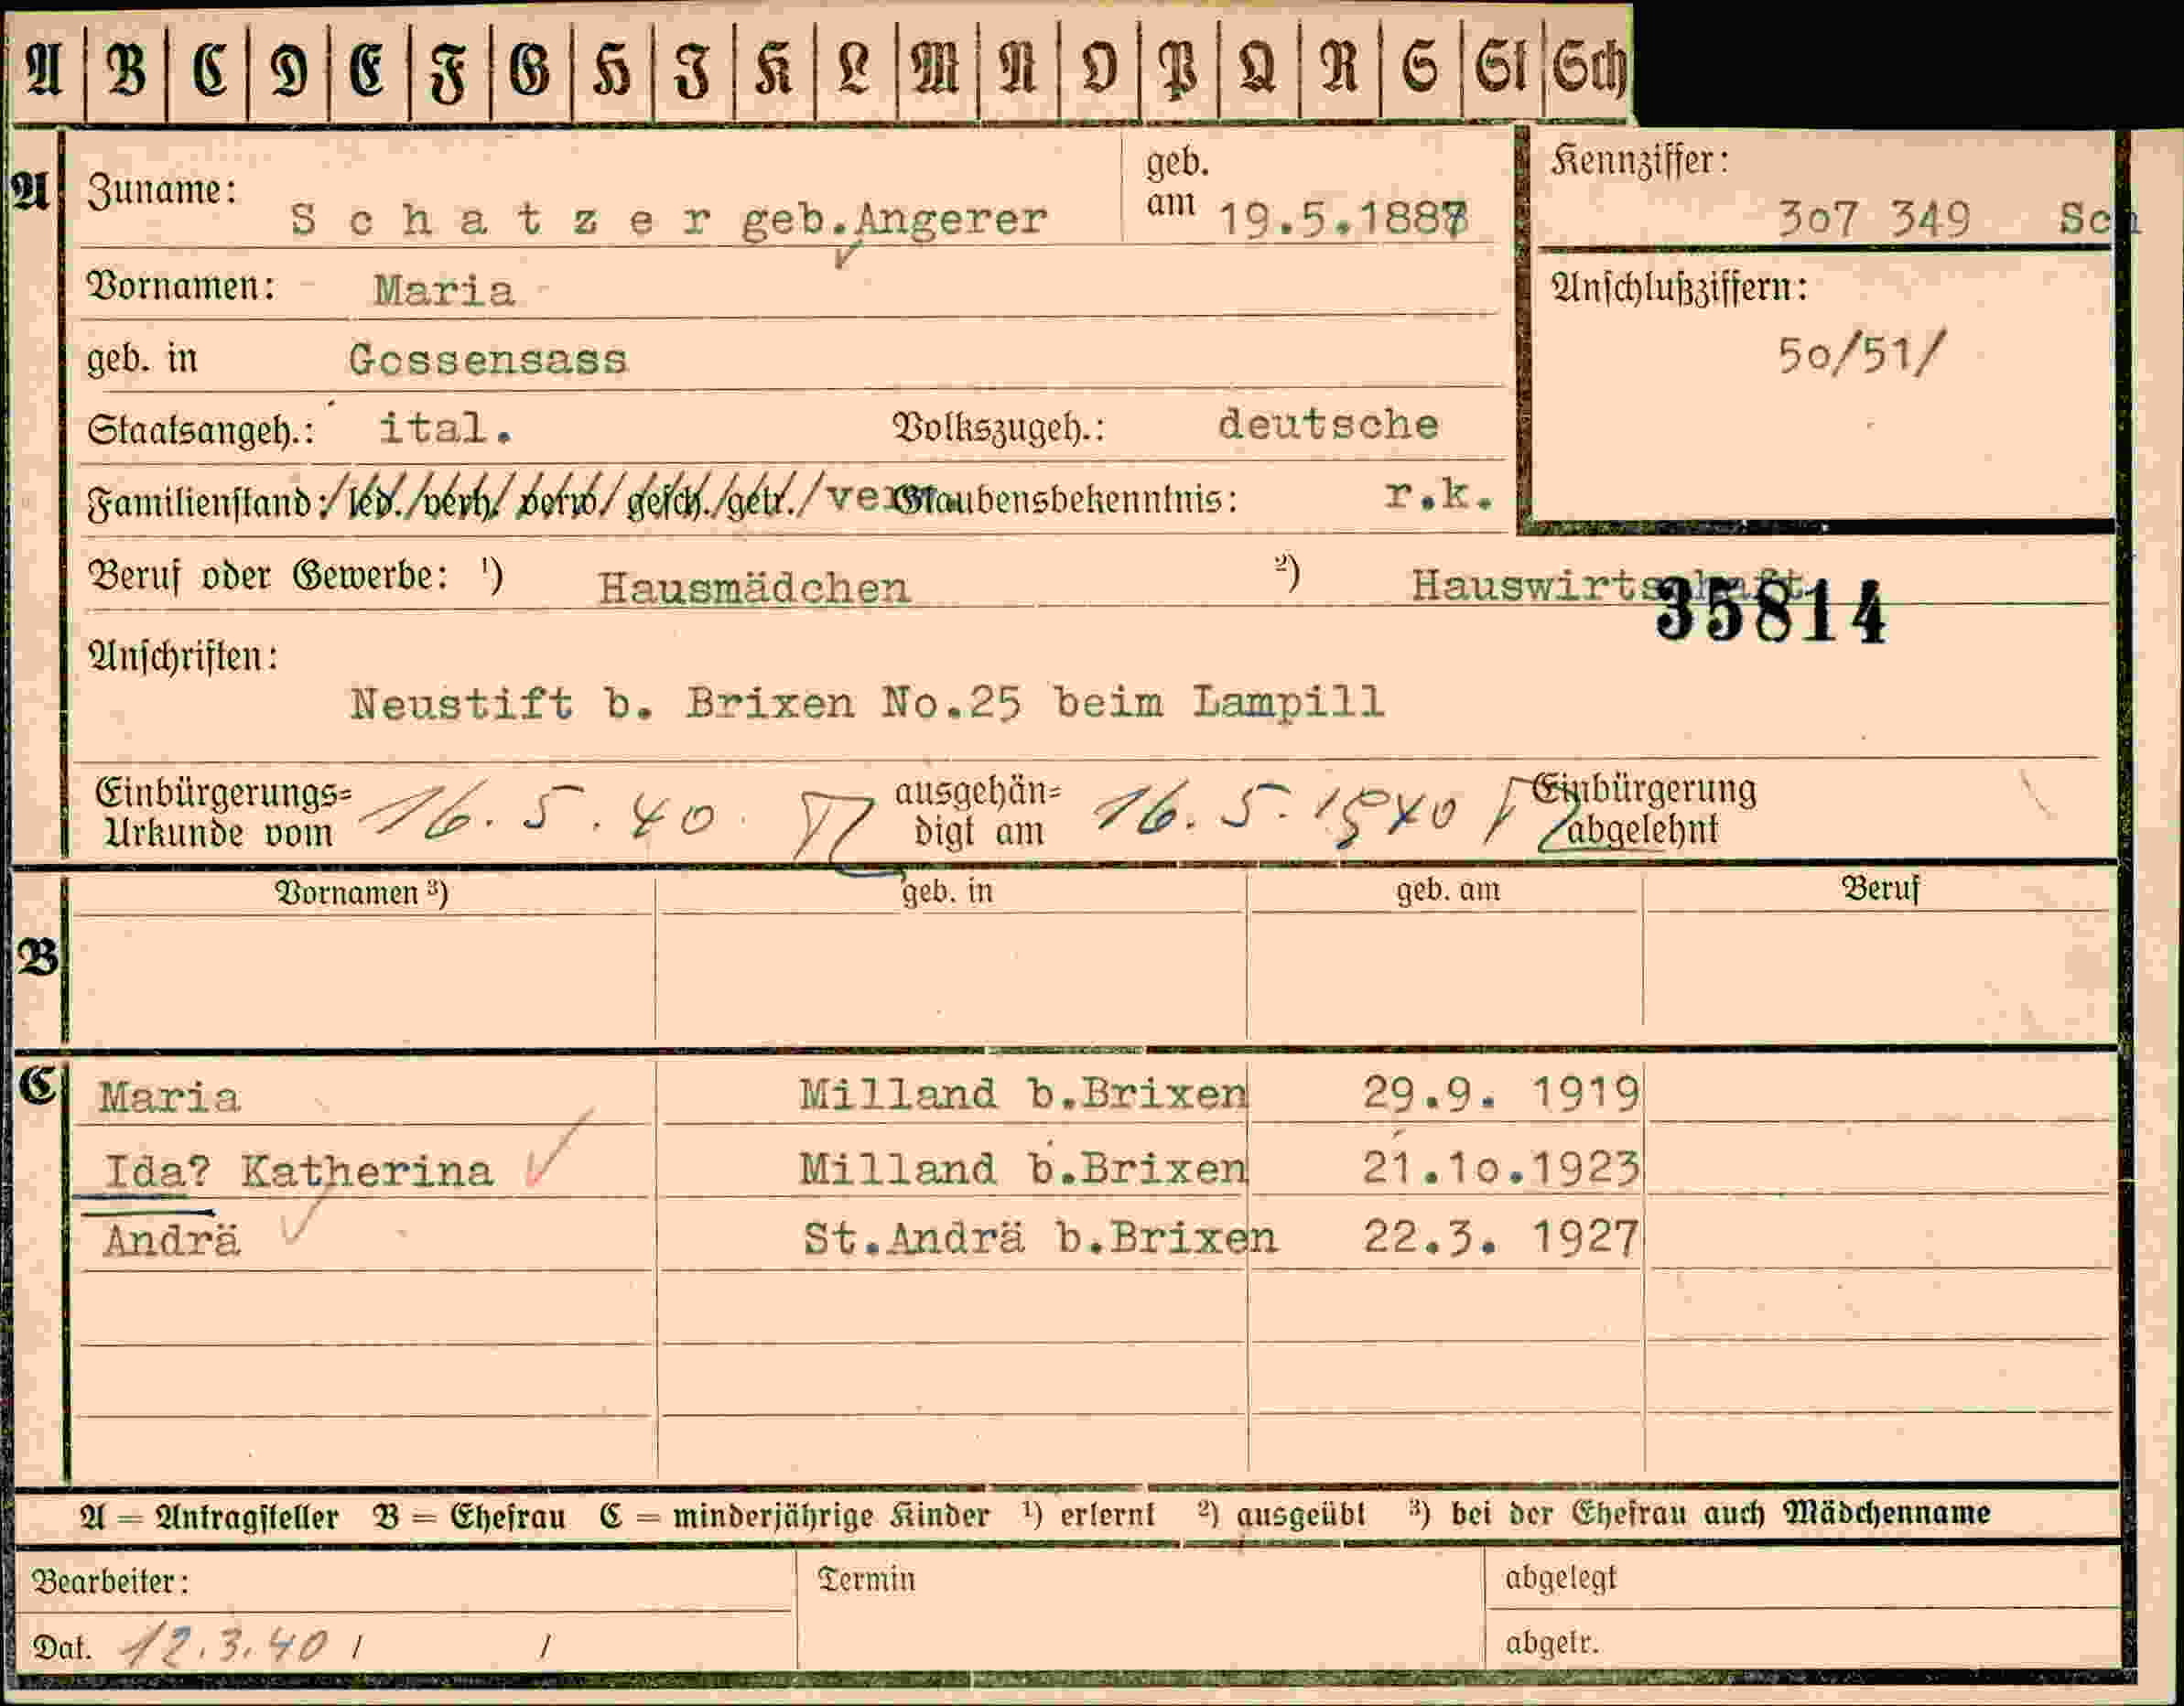 A B C D E F G H J K L M N O P Q R S St Sch
A
Zuname: Schatzer geb.Angerer geb. am 19.5.1887
Kennziffer: 307 349 Sch
Vornamen: Maria
Anschlußziffern: 50/51/
geb. in Gossensass
Staatsangeh.: ital. Volkszugeh.: deutsche
Familienstand: / led. / verh. / verw / gesch. / getr. / verw Glaubensbekenntnis: r.k.
Beruf oder Gewerbe: ¹) Hausmädchen ²) Hauswirtschaft
35814
Anschriften:
Neustift b. Brixen No.25 beim Lampill
Einbürgerungs= Urkunde vom 16.5.40. ausgehän= digt am 16.5.1940 Einbürgerung abgelehnt
Vornamen ³) geb. in geb. am Beruf
B
C Maria Milland b.Brixen 29.9. 1919
Ida? Katherina Milland b.Brixen 21.10.1923
Andrä St.Andrä b.Brixen 22.3. 1927
A = Antragsteller B = Ehefrau C = minderjährige Kinder ¹) erlernt ²) ausgeübt ³) bei der Ehefrau auch Mädchenname
Bearbeiter: Termin abgelegt
Dat. 12.3.40 / / abgetr.